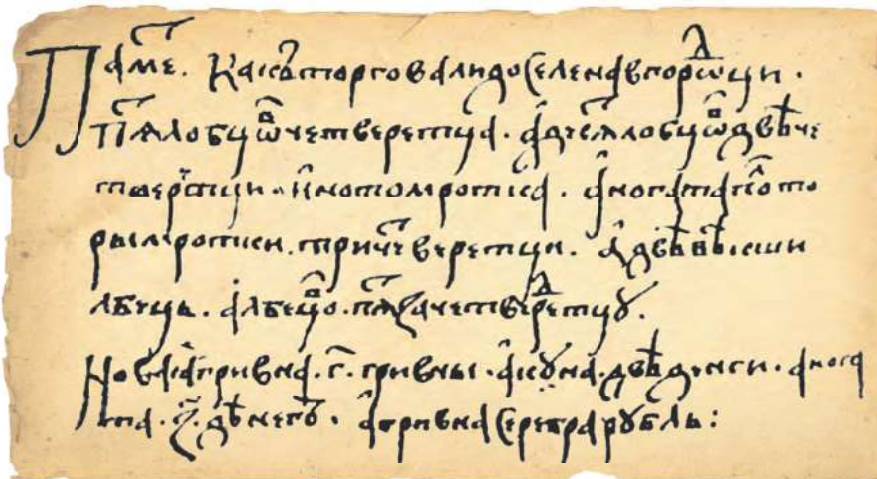 Паме҇т. Какъ торговали доселе навгорѡдци.
Пѧ҇т лобцѡв четверетца. а десѧ҇т лобцѡв двѣ че
тверетци. ино томротка. а ногата покото
рым рописи. три четверетци. а двѣ вѣкши
лбець. а лбецов. пѧ҇т за четверетцꙋ.
Новаа гривна. г҃. гривны. а кꙋна. двѣ денги. а нога
та. з҃. денегъ. а гривна серебра рꙋбль: